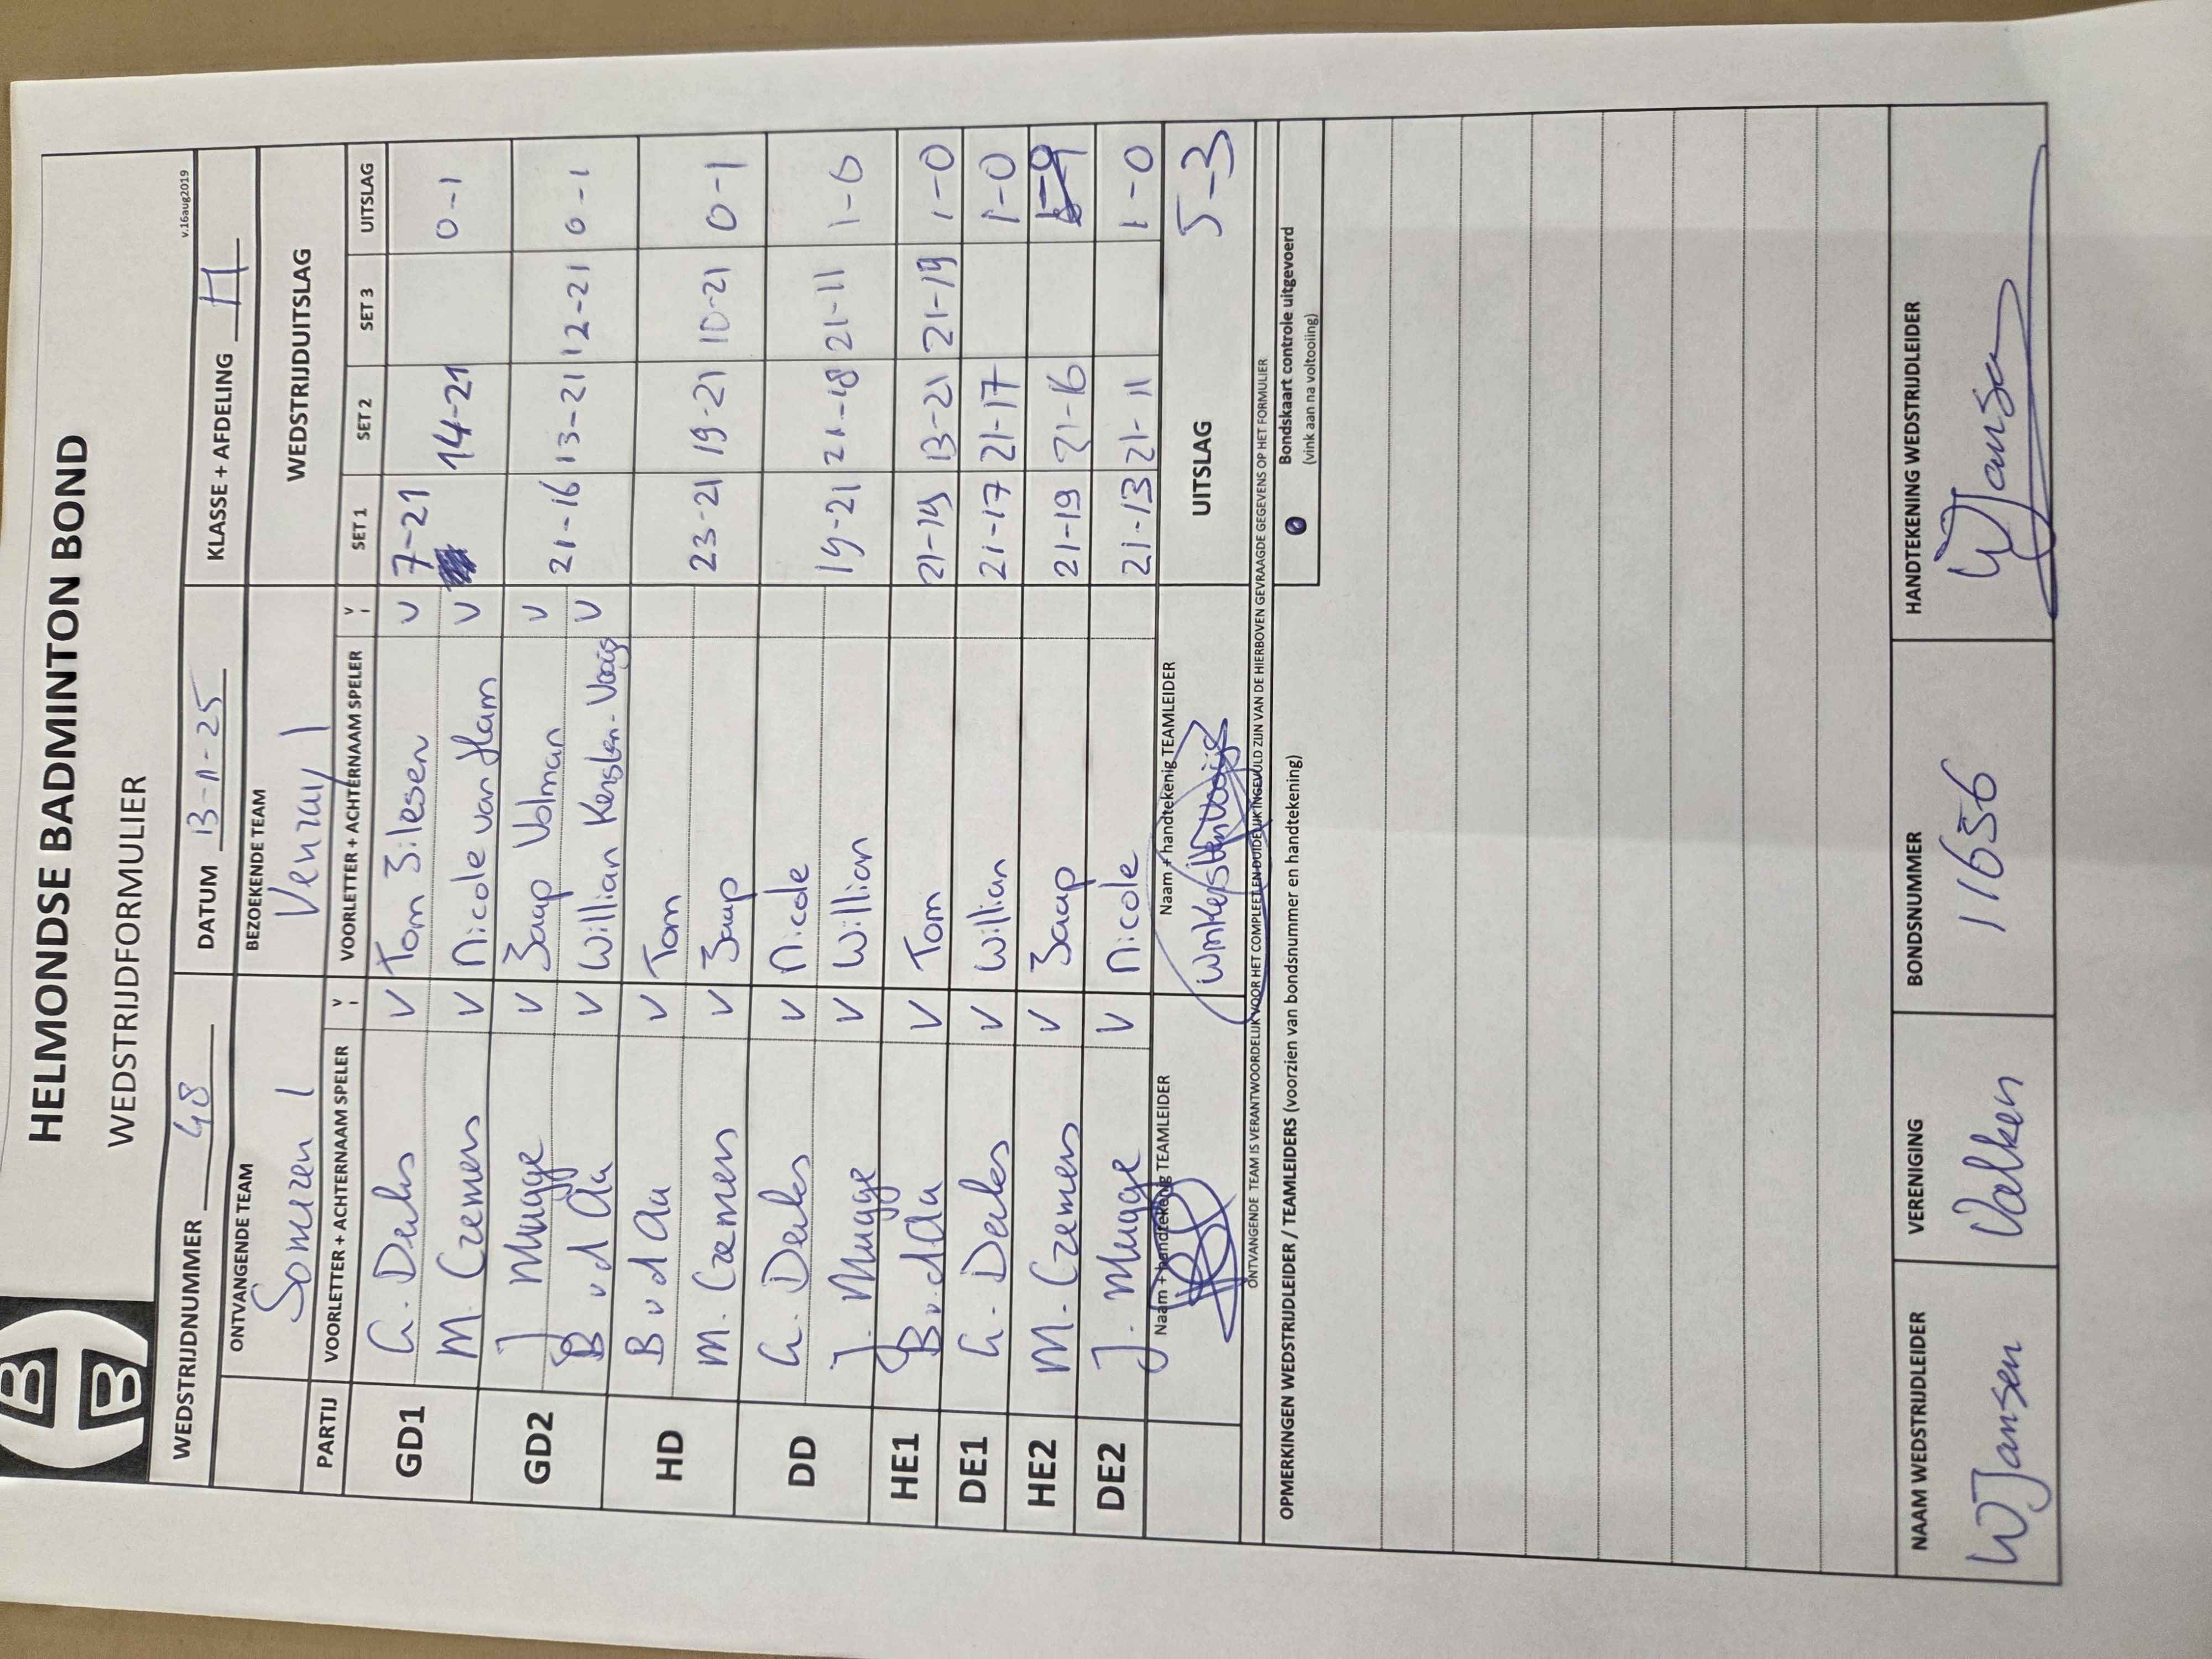 HELMONDSE BADMINTON BOND
WEDSTRIJDFORMULIER
v.16aug2019
WEDSTRIJDNUMMER 48 DATUM 13-11-25 KLASSE + AFDELING
ONTVANGENDE TEAM BEZOEKENDE TEAM WEDSTRIJDUITSLAG
Someren 1 Venray 1
PARTIJ VOORLETTER + ACHTERNAAM SPELER V VOORLETTER + ACHTERNAAM SPELER V SET 1 SET 2 SET 3 UITSLAG
GD1 G. Derks V Tom Jilesen V 7-21 14-21 0-1
M. Craemers V Nicole van Ham V
GD2 J Mugge V Jaap Volman V 21-16 13-21 12-21 0-1
B v d Aa V Willian Kersten-Vooijs V
HD B v d Aa V Tom 23-21 19-21 10-21 0-1
M. Craemers V Jaap
DD G. Derks V Nicole 19-21 21-18 21-11 1-0
J. Mugge V Willian
HE1 B v. d Aa V Tom 21-19 13-21 21-19 1-0
DE1 G. Derks V Willian 21-17 21-17 1-0
HE2 M. Craemers V Jaap 21-19 21-16
DE2 J. Mugge V Nicole 21-13 21-11 1-0
Naam + handtekenig TEAMLEIDER Naam + handtekenig TEAMLEIDER UITSLAG 5-3
ONTVANGENDE TEAM IS VERANTWOORDELIJK VOOR HET COMPLEET EN DUIDELIJK INGEVULD ZIJN VAN DE HIERBOVEN GEVRAAGDE GEGEVENS OP HET FORMULIER
OPMERKINGEN WEDSTRIJDLEIDER / TEAMLEIDERS (voorzien van bondsnummer en handtekening)
Bondskaart controle uitgevoerd
(vink aan na voltooiing)
NAAM WEDSTRIJDLEIDER VERENIGING BONDSNUMMER HANDTEKENING WEDSTRIJDLEIDER
W Jansen Valken 11656 W Jansen